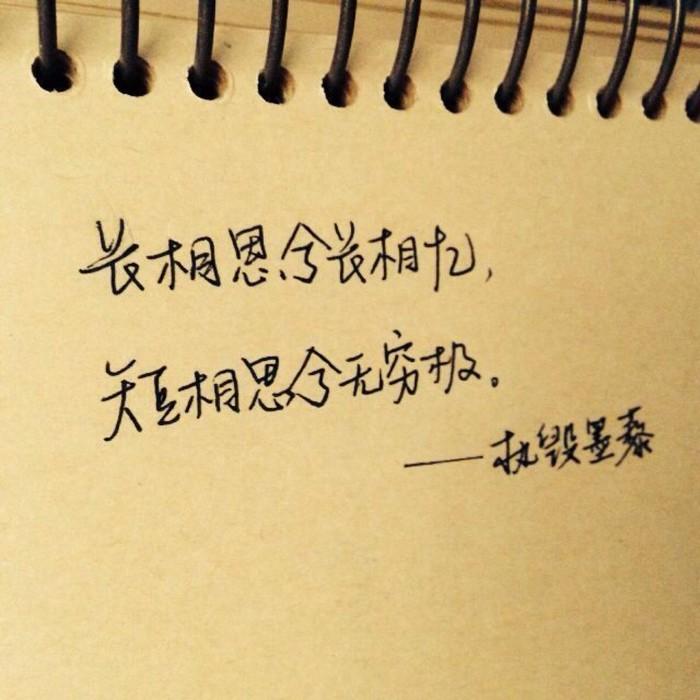 长相思兮长相忆,
短相思兮无穷极。
——执毁墨黎